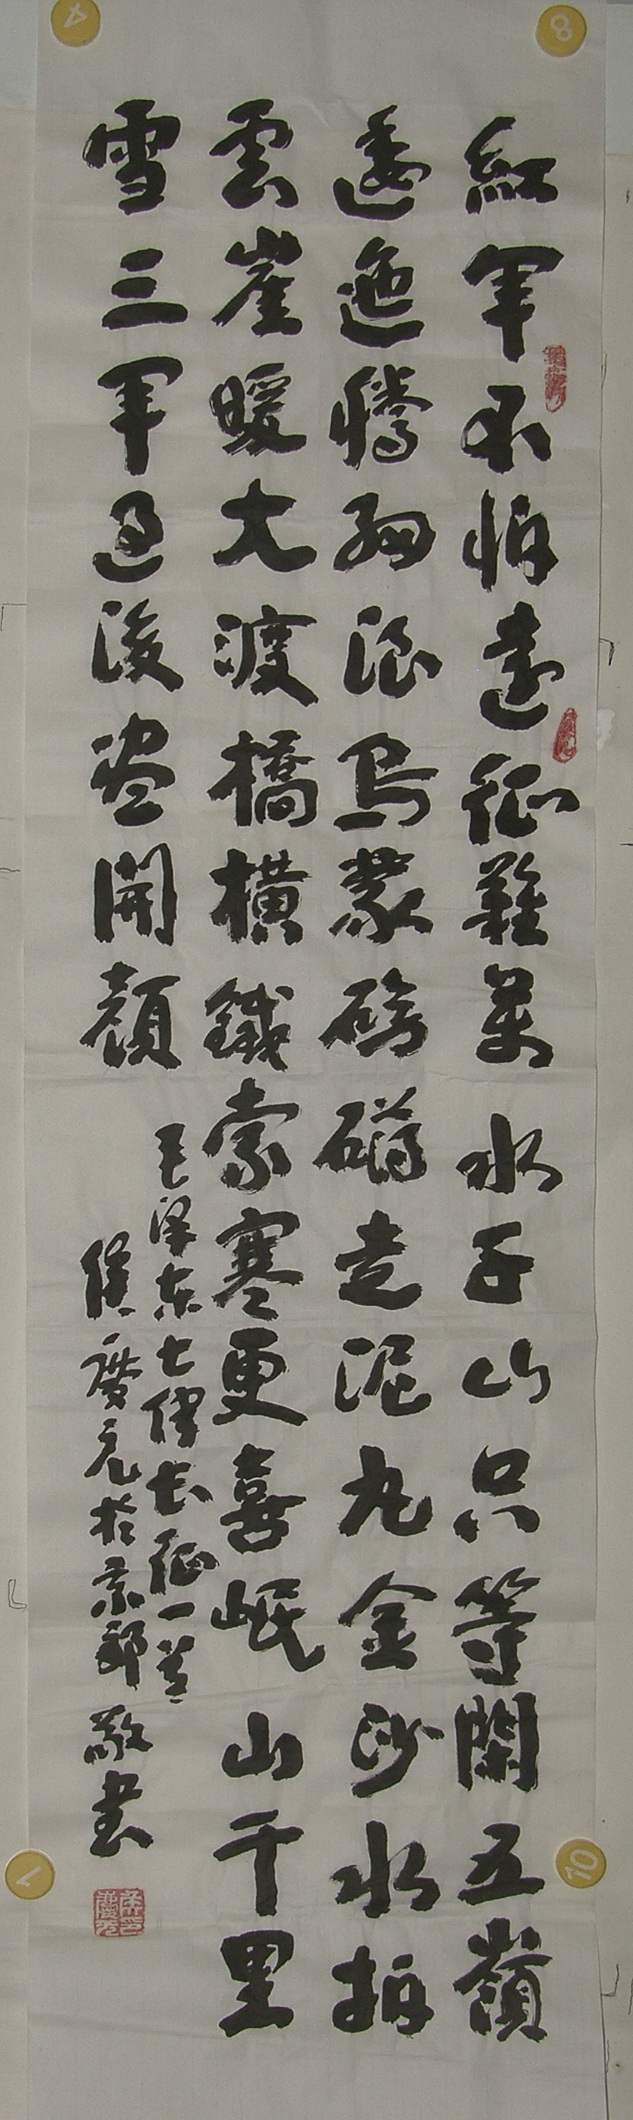 紅軍不怕遠征難萬水千山只等閑五嶺
逶迤騰細浪烏蒙磅礴走泥丸金沙水拍
雲崖暖大渡橋橫鐵索寒更喜岷山千里
雪三軍過後盡開顏
毛泽东七律长征一首
侯慶 於京郊敬书
4
8
7
10